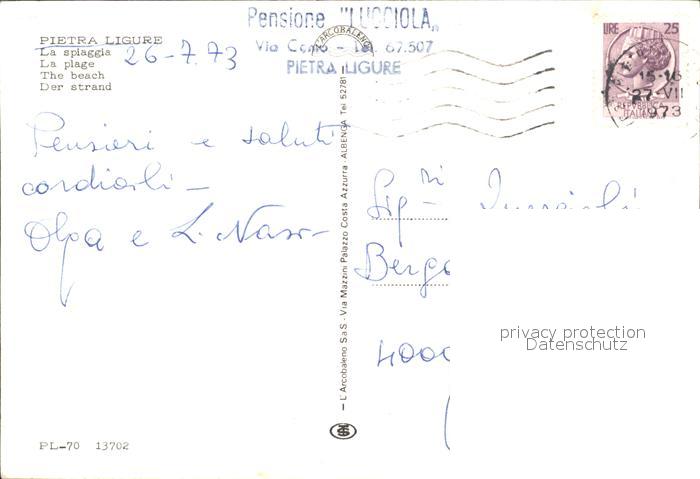 Pensione "LUCCIOLA"
Via Como - Tel. 67.507
PIETRA LIGURE
PIETRA LIGURE
La spiaggia
La plage
The beach
Der strand
26-7.73
LIRE 25
REPUBBLICA
ITALIANA
15-16
27-VII
1973
ARCOBALENO
Pensieri e saluti
cordiali -
Olga e L.
Sig.ri
— L'Arcobaleno S.a.S. - Via Mazzini Palazzo Costa Azzurra - ALBENGA Tel 52781 —
privacy protection
Datenschutz
PL-70 13702